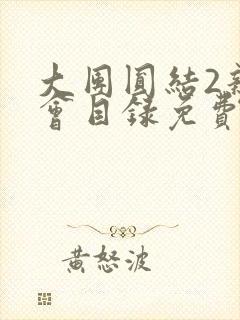 大団圓結2新
會目錄免費
黃怒波